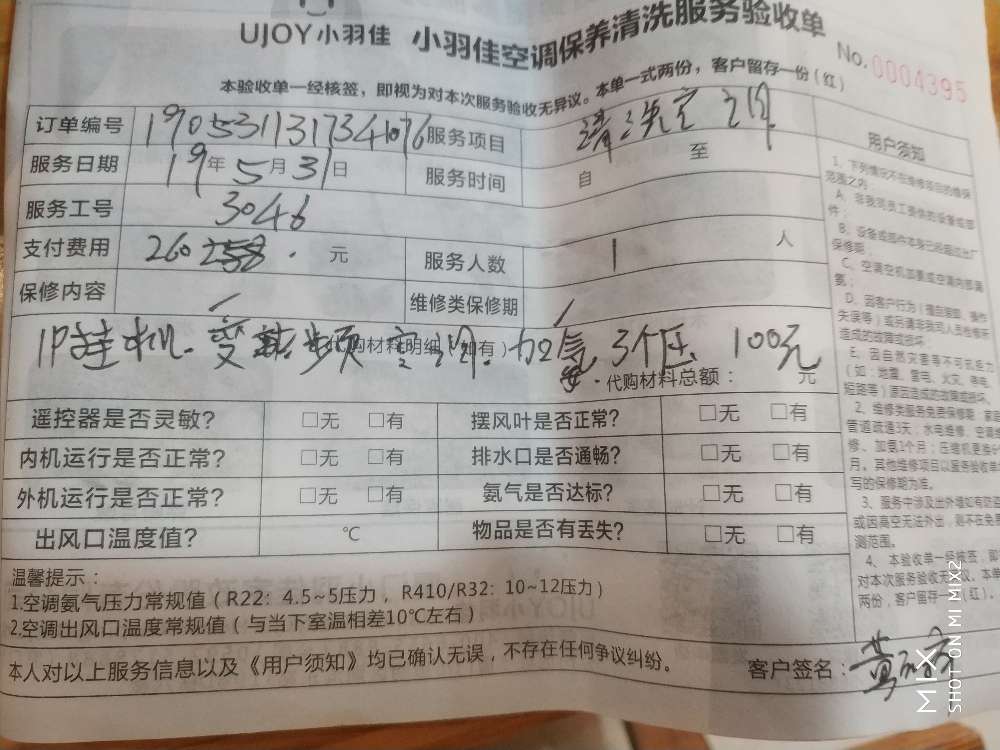 UJOY小羽佳 小羽佳空调保养清洗服务验收单
No. 0004395
本验收单一经核签，即视为对本次服务验收无异议。本单一式两份，客户留存一份（红）
订单编号 1905311317341076 服务项目 清洗空调
服务日期 19年5月31日 服务时间 自 至
服务工号 3046
支付费用 260 258 . 元 服务人数 1 人
保修内容 / 维修类保修期 /
代购材料明细（如有）
1P挂机. 变频空调. 加氨3个压 100元
代购材料总额： 元
遥控器是否灵敏？ □无 □有 摆风叶是否正常？ □无 □有
内机运行是否正常？ □无 □有 排水口是否通畅？ □无 □有
外机运行是否正常？ □无 □有 氨气是否达标？ □无 □有
出风口温度值？ ℃ 物品是否有丢失？ □无 □有
温馨提示：
1.空调氨气压力常规值（R22：4.5~5压力，R410/R32：10~12压力）
2.空调出风口温度常规值（与当下室温相差10℃左右）
本人对以上服务信息以及《用户须知》均已确认无误，不存在任何争议纠纷。 客户签名：
用户须知
1、下列情况不在维修项目的维保
范围之内：
A、非我司员工提供的设备或部
件；
B、设备或部件本身已经超过出厂
保修期；
C、空调空机加氨或空调内部漏
氨；
D、因客户行为（擅自拆卸、操作
失误等）或另请非我司人员检修所
造成的故障或损坏；
E、因自然灾害等不可抗力
（如：地震、雷电、火灾、停电、
短路等）原因造成的故障或损坏。
2、维修类服务免费保修期：家庭
管道疏通3天；水电维修、空调维
修、加氨1个月；压缩机更换
月。其他维修项目以服务验收单
写的保修期为准。
3、服务中涉及出外墙如有防盗
或因高空无法外出，则不在免
测范围。
4、本验收单一经核签，即
对本次服务验收无异议。本单
两份，客户留存一份（红）。
MIX
SHOT ON MI MIX2